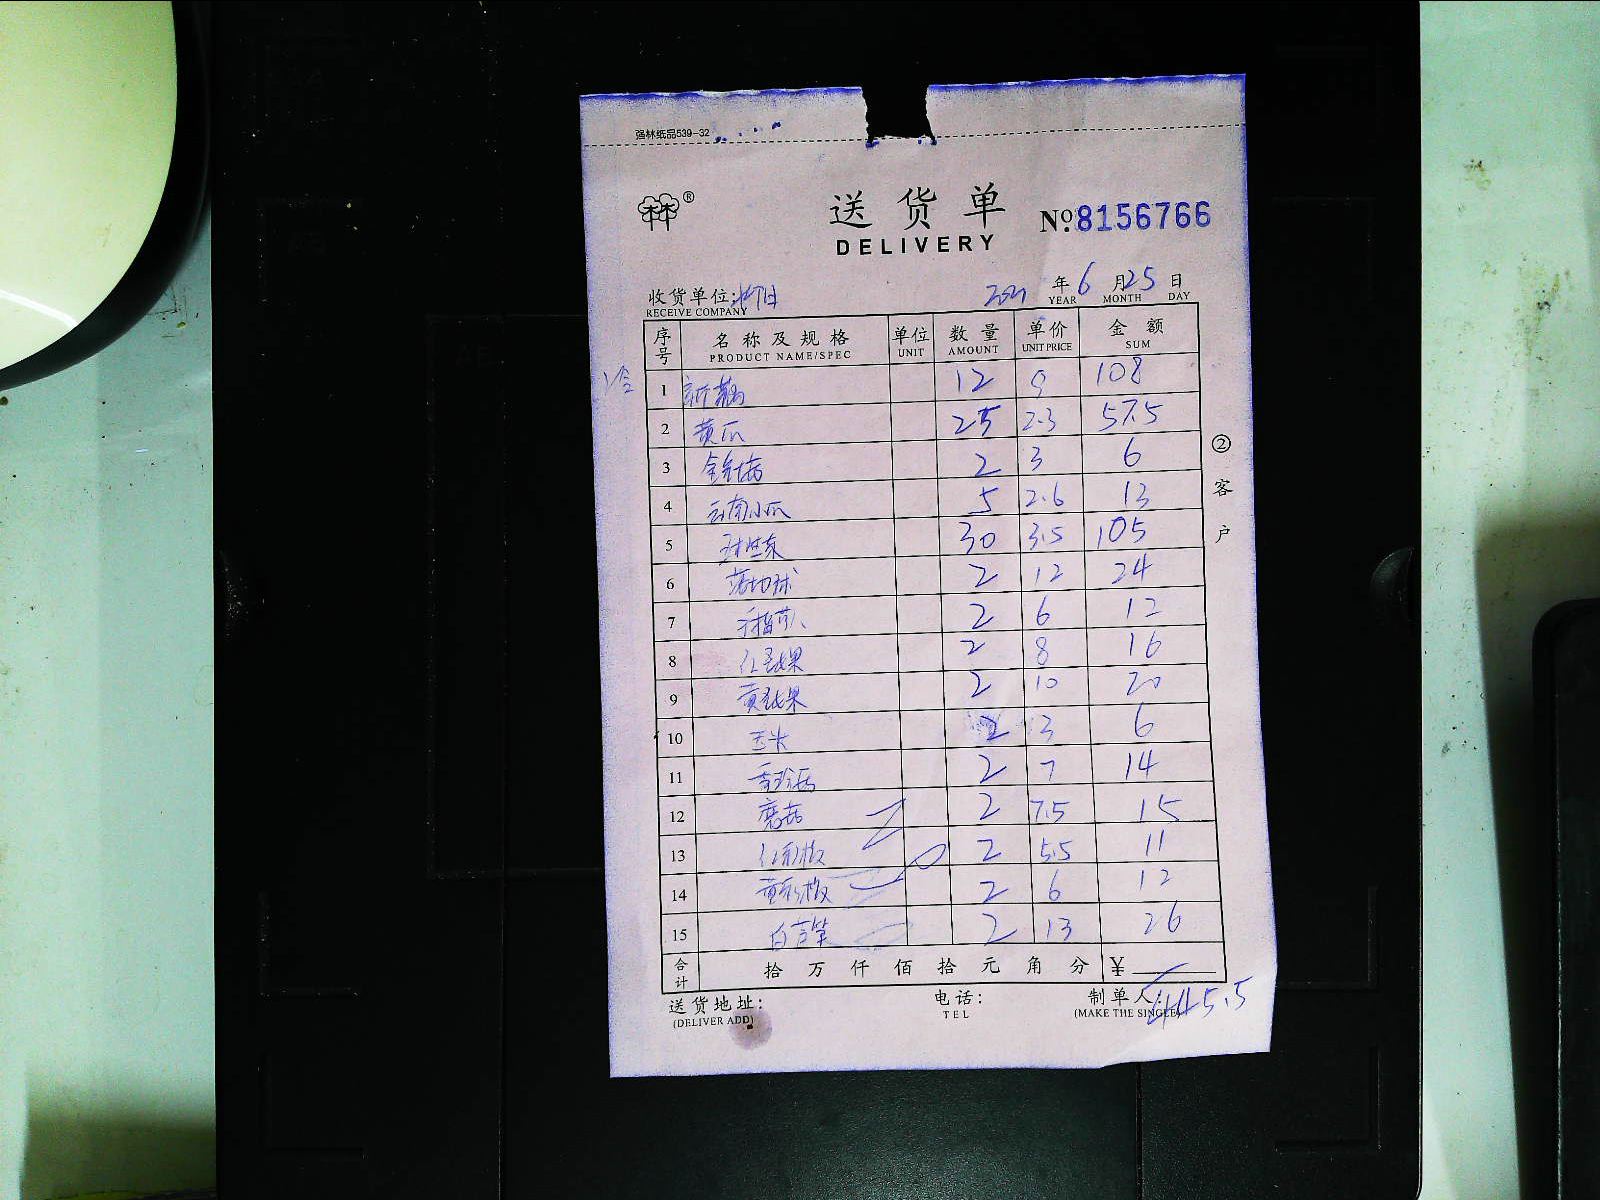 强林纸品539-32
林林®
送货单
DELIVERY
Nº:8156766
收货单位:
RECEIVE COMPANY
2021 年 6 月 25 日
YEAR MONTH DAY
序号 名称及规格 单位 数量 单价 金额
PRODUCT NAME/SPEC UNIT AMOUNT UNIT PRICE SUM
1 12 9 108
2 黄瓜 25 2.3 57.5
3 金针菇 2 3 6
4 云南小瓜 5 2.6 13
5 30 3.5 105
6 2 12 24
7 2 6 12
8 红火龙果 2 8 16
9 黄火龙果 2 10 20
10 玉米 2 3 6
11 2 7 14
12 蘑菇 2 7.5 15
13 红彩椒 2 5.5 11
14 黄彩椒 2 6 12
15 白芦笋 2 13 26
合计 拾 万 仟 佰 拾 元 角 分 ¥
445.5
送货地址: 电话: 制单人:
(DELIVER ADD) TEL (MAKE THE SINGLE)
②客户